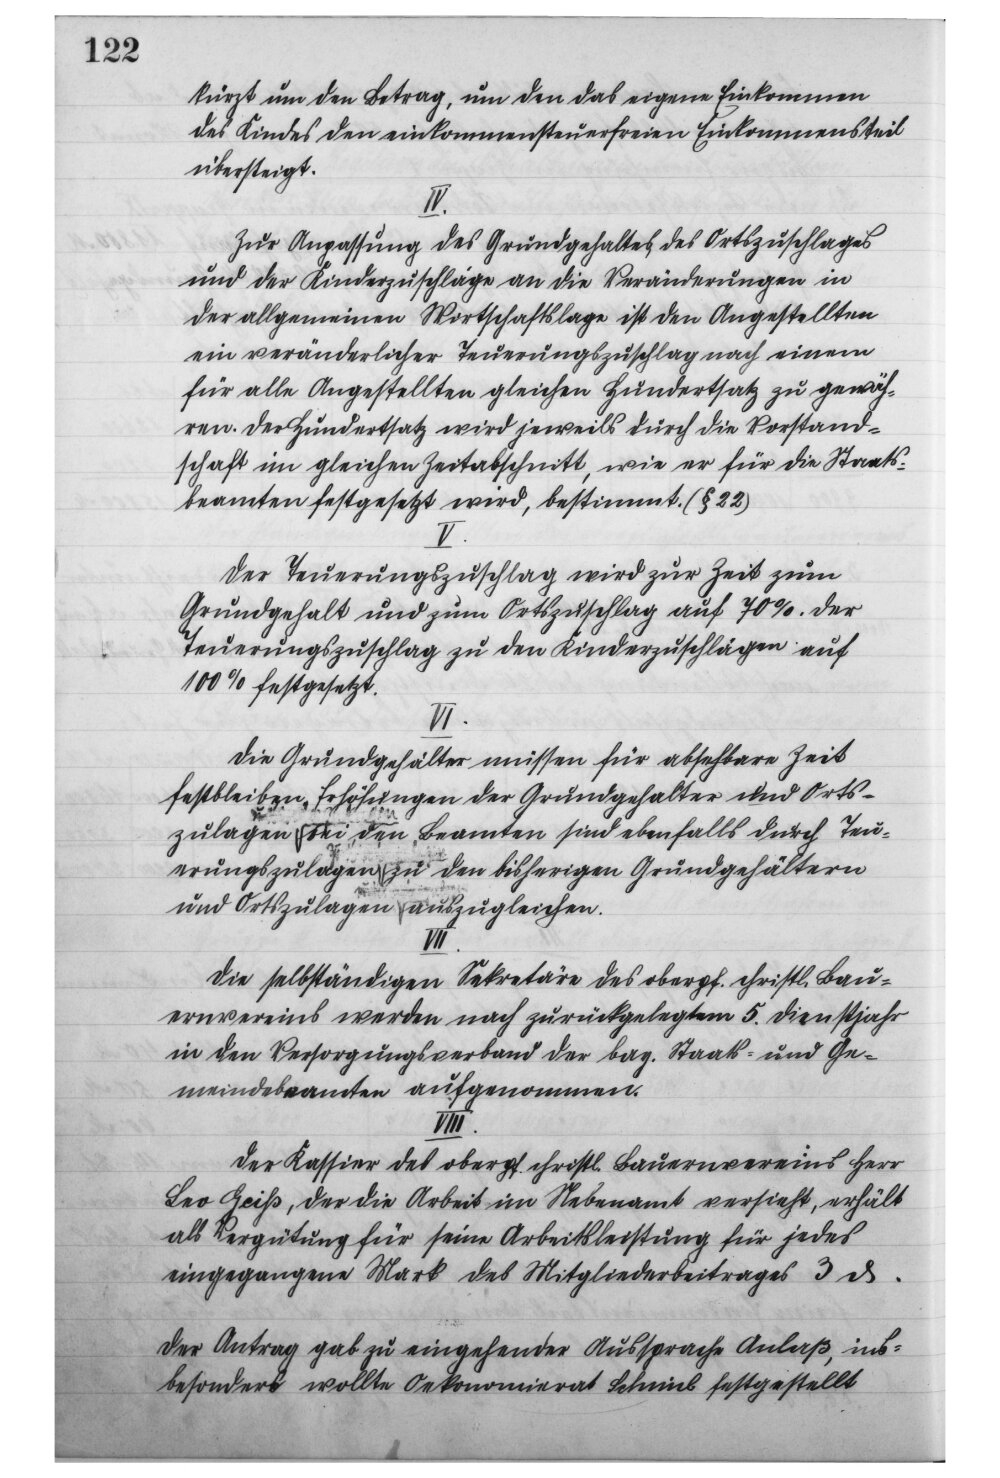 122
kürzt um den Betrag, um den das eigene Einkommen
des Kindes den einkommensteuerfreien Einkommensteil
übersteigt.
IV.
Zur Anpassung des Grundgehaltes, des Ortszuschlages
und der Kinderzuschläge an die Veränderungen in
der allgemeinen Wirtschaftslage ist den Angestellten
ein veränderlicher Teuerungszuschlag nach einem
für alle Angestellten gleichen Hundertsatz zu gewäh-
ren. Der Hundertsatz wird jeweils durch die Vorstand-
schaft im gleichen Zeitabschnitt, wie er für die Staats-
beamten festgesetzt wird, bestimmt. (§ 22)
V.
Der Teuerungszuschlag wird zur Zeit zum
Grundgehalt und zum Ortszuschlag auf 70%. Der
Teuerungszuschlag zu den Kinderzuschlägen auf
100% festgesetzt.
VI.
Die Grundgehälter müssen für absehbare Zeit
festbleiben. Erhöhungen der Grundgehälter und Orts-
zulagen bei den Beamten sind ebenfalls durch Teu-
erungszulagen zu den bisherigen Grundgehältern
und Ortszulagen auszugleichen.
VII.
Die selbständigen Sekretäre des oberpf. christl. Bau-
ernvereins werden nach zurückgelegtem 5. Dienstjahr
in den Versorgungsverband der bay. Staats- und Ge-
meindebeamten aufgenommen.
VIII.
Der Kassier des oberpf. christl. Bauernvereins Herr
Leo Geiß, der die Arbeit im Nebenamt versieht, erhält
als Vergütung für seine Arbeitsleistung für jedes
eingegangene Mark des Mitgliederbeitrages 3 ₰.
Der Antrag gab zu eingehender Aussprache Anlaß, ins-
besonders wollte Oekonomierat festgestellt